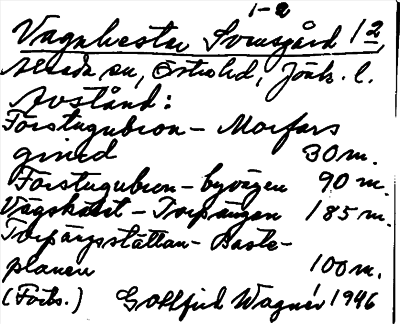 1-2
Vagnhester Svensgård 1 2,
Almåkra sn, Östra hd, Jönk. l.
Avstånd:
Förstugubron - Morfars
grind 30 m.
Förstugubron - byvägen 90 m.
Vägskälet - Torpängen 185 m.
Torpängsstättan - Baste-
planen 100 m.
(Forts.) Gottfrid Wagnér 1946